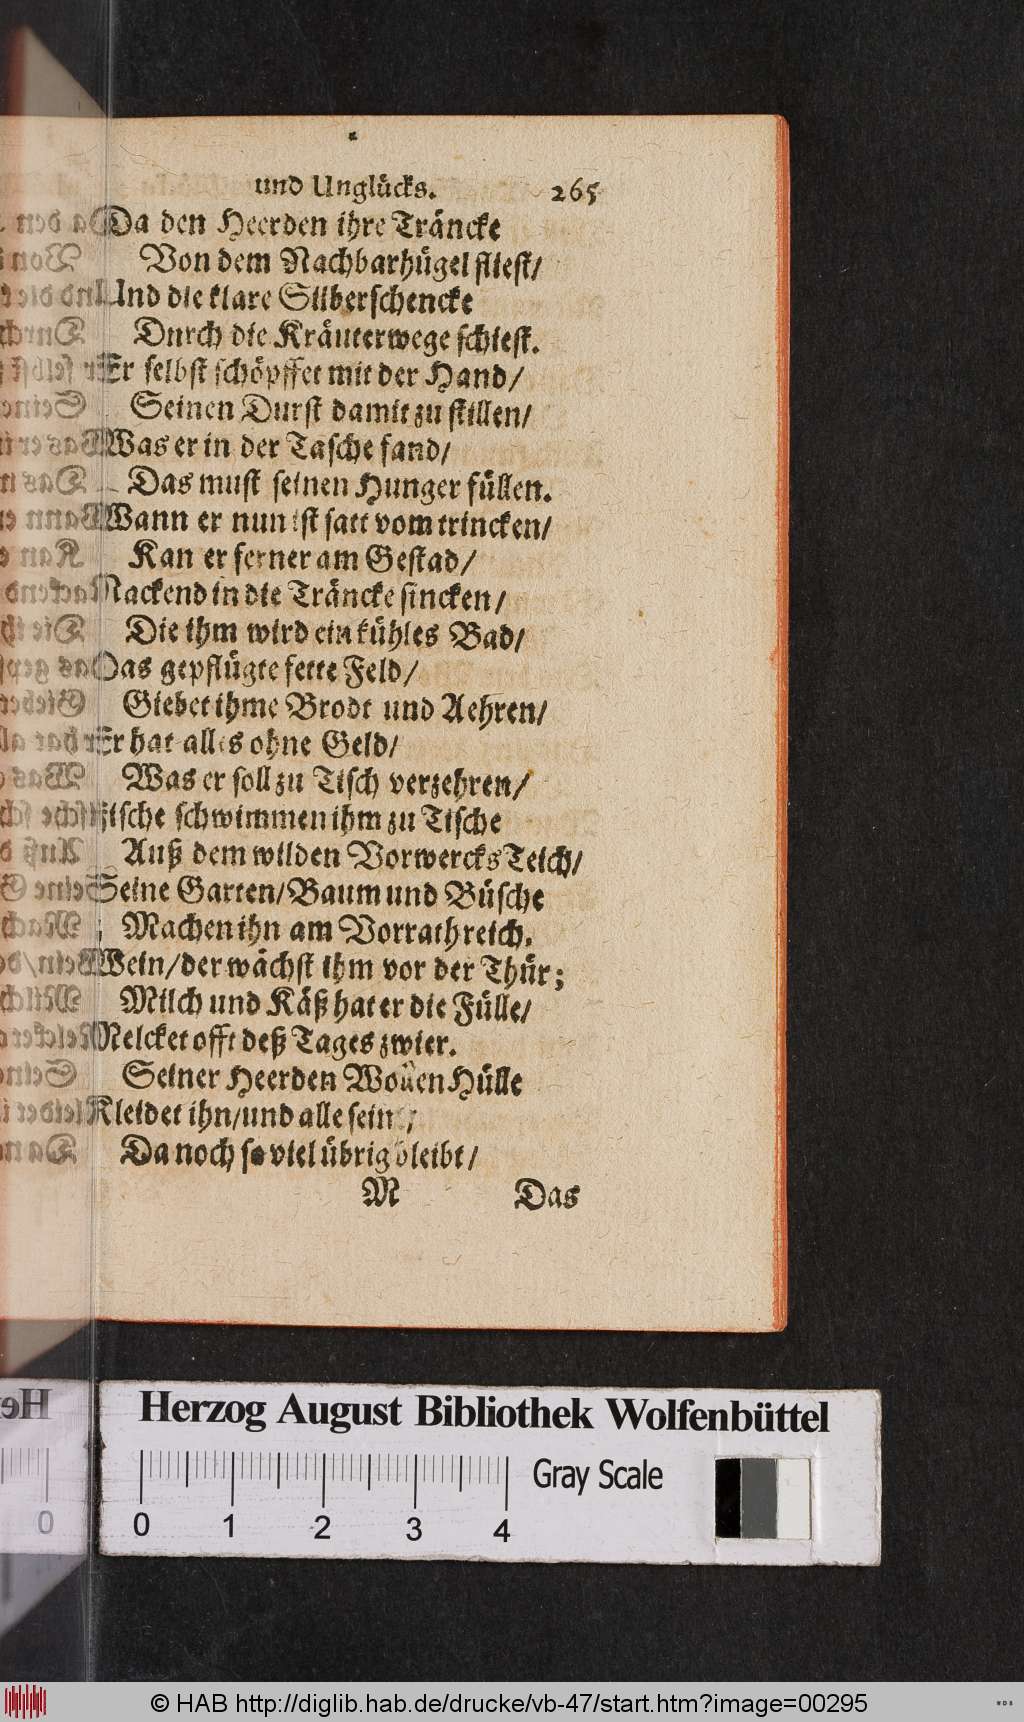 und Unglücks. 265
Da den Heerden ihre Träncke
Von dem Nachbarhügel fliest/
Und die klare Silberschencke
Durch die Kräuterwege schiest.
Er selbst schöpffet mit der Hand/
Seinen Durst damit zu stillen/
Was er in der Tasche fand/
Das must seinen Hunger füllen.
Wann er nun ist satt vom trincken/
Kan er ferner am Gestad/
Nackend in die Träncke sincken/
Die ihm wird ein kühles Bad/
Das gepflügte fette Feld/
Giebet ihme Brodt und Aehren/
Er hat alles ohne Geld/
Was er soll zu Tisch verzehren/
Fische schwimmen ihm zu Tische
Auß dem wilden Vorwercks Teich/
Seine Garten/ Baum und Büsche
Machen ihn am Vorrath reich.
Wein/ der wächst ihm vor der Thür;
Milch und Käß hat er die Fülle/
Melcket offt deß Tages zwier.
Seiner Heerden Wollen Hülle
Kleidet ihn/ und alle sein
Da noch so viel übrig bleibt/
M Das
Herzog August Bibliothek Wolfenbüttel
0 1 2 3 4 Gray Scale
© HAB http://diglib.hab.de/drucke/vb-47/start.htm?image=00295